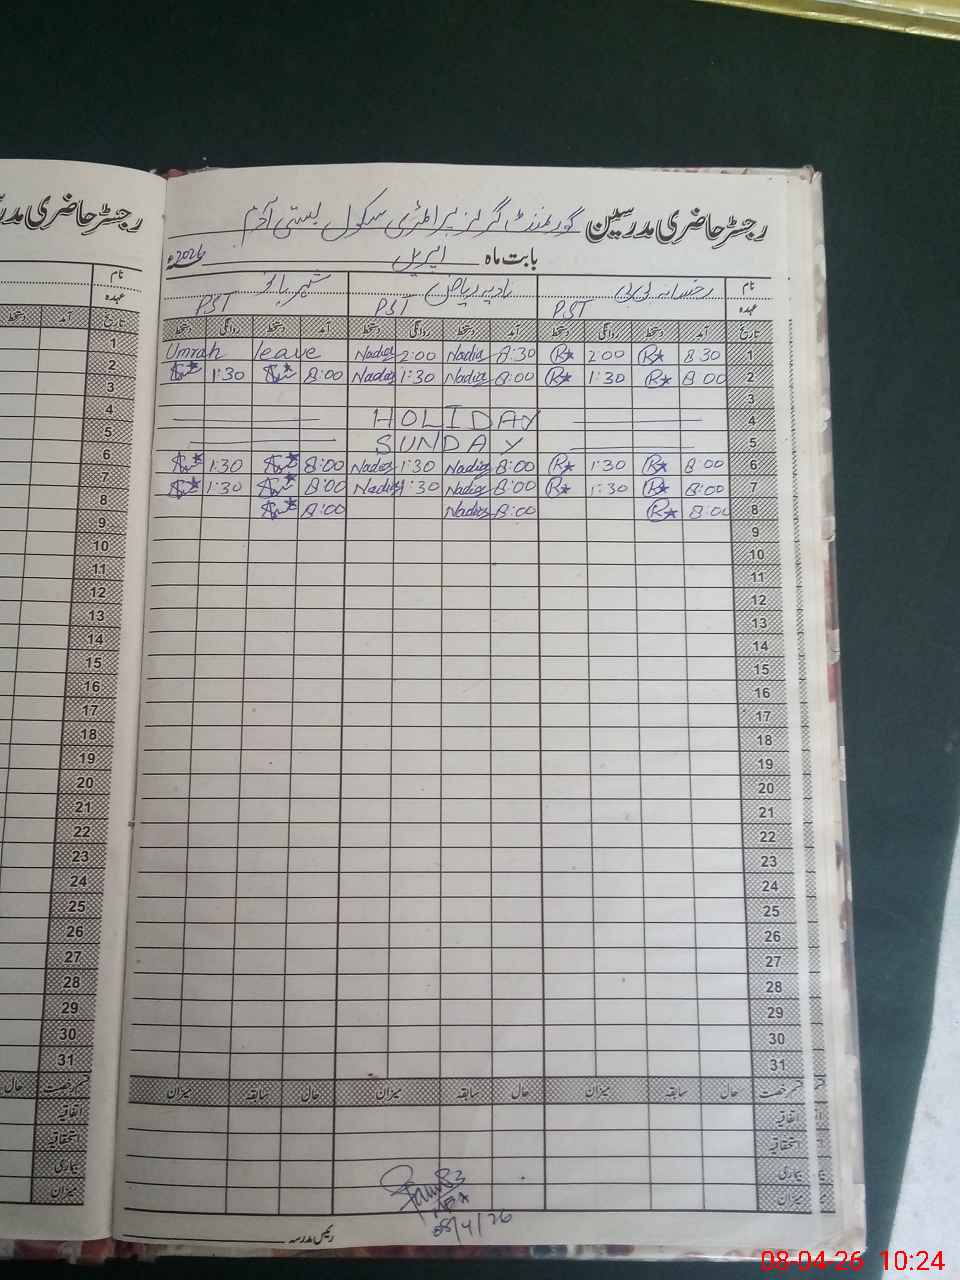 رجسٹر حاضری مدرسین گورنمنٹ گرلز پرائمری سکول بستی آدم
بابت ماہ اپریل 2026ء
نام رخسانہ بی بی نادیہ ریاض شہر بانو
عہدہ PST PST PST
تاریخ آمد دستخط روانگی دستخط آمد دستخط روانگی دستخط آمد دستخط روانگی دستخط
1 8:30 R 2:00 R 8:30 Nadia 2:00 Nadia Umrah leave
2 8:00 R 1:30 R 8:00 Nadia 1:30 Nadia 8:00 1:30
3
4 HOLIDAY
5 SUNDAY
6 8:00 R 1:30 R 8:00 Nadia 1:30 Nadia 8:00 1:30
7 8:00 R 1:30 R 8:00 Nadia 1:30 Nadia 8:00 1:30
8 8:00 R 8:00 Nadia 8:00
9
10
11
12
13
14
15
16
17
18
19
20
21
22
23
24
25
26
27
28
29
30
31
قسم رخصت حال سابقہ میزان حال سابقہ میزان حال سابقہ میزان
اتفاقیہ
استحقاقیہ
بیماری
میزان
08/4/26
رئیس مدرسہ
رجسٹر حاضری مدر
نام
عہدہ
تاریخ آمد دستخط
1
2
3
4
5
6
7
8
9
10
11
12
13
14
15
16
17
18
19
20
21
22
23
24
25
26
27
28
29
30
31
قسم رخصت حال
اتفاقیہ
استحقاقیہ
بیماری
میزان
08-04-26 10:24